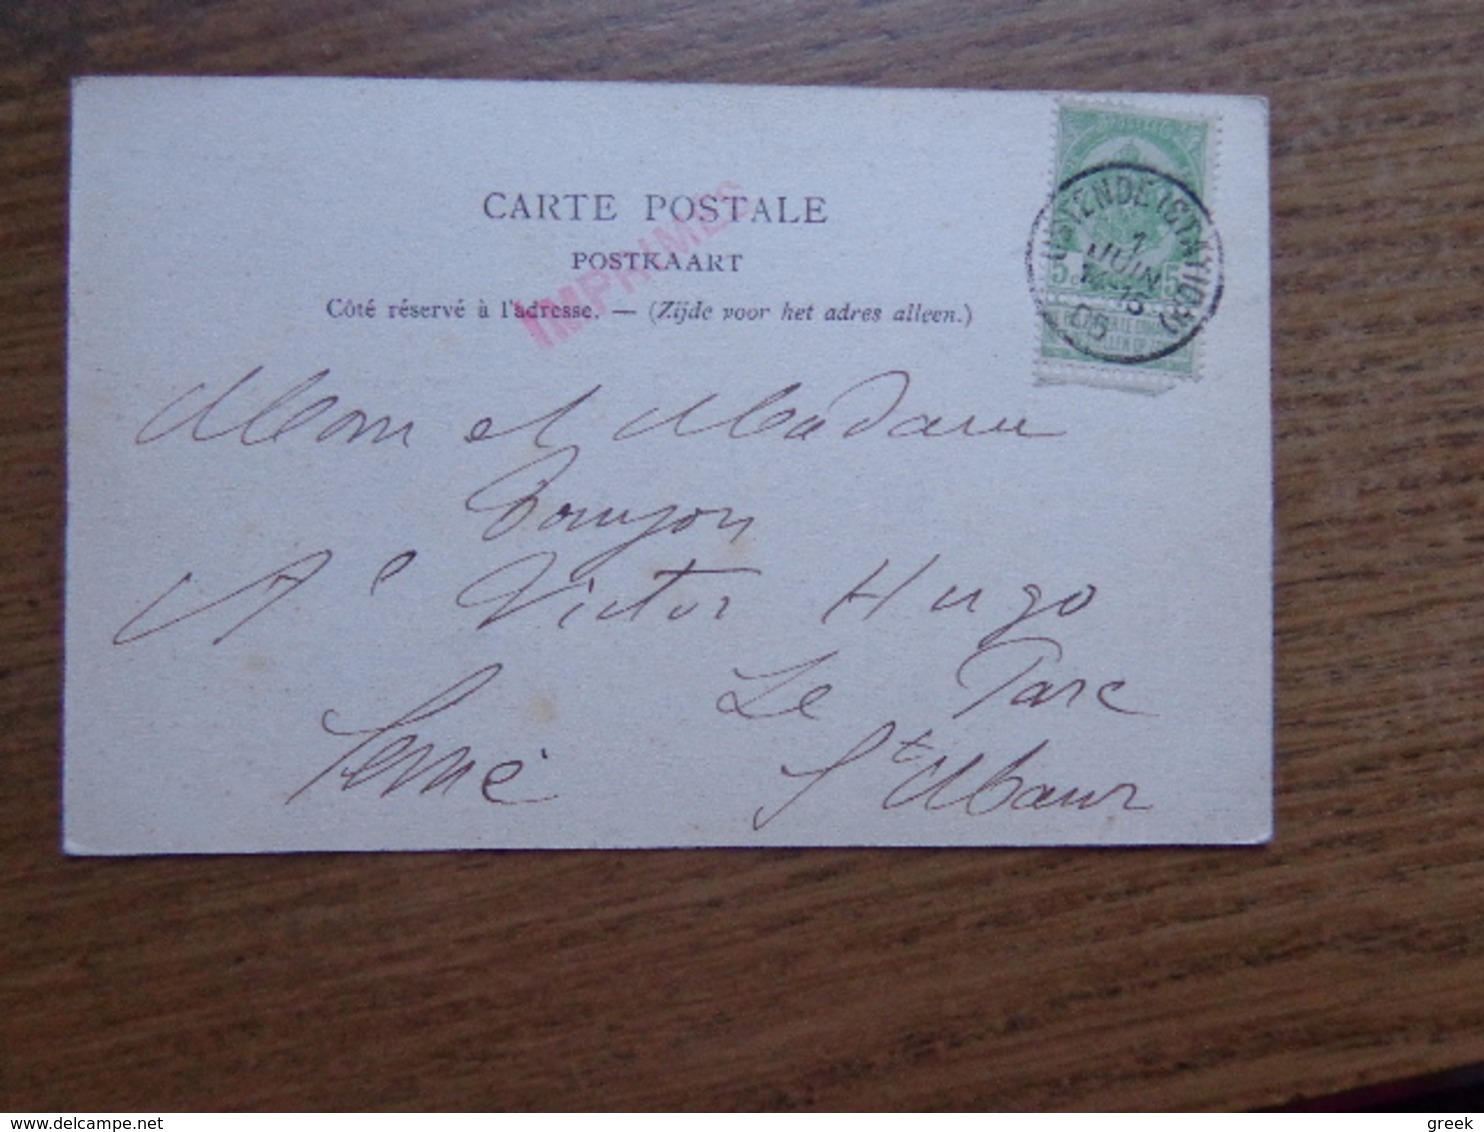 CARTE POSTALE
POSTKAART
IMPRIMÉS
Côté réservé à l'adresse. — (Zijde voor het adres alleen.)
OSTENDE (STATION)
1
JUIN
05
5 5
Mons et Madame
Victor Hugo
Le Parc
St Maur
Seine
© delcampe.net
greek